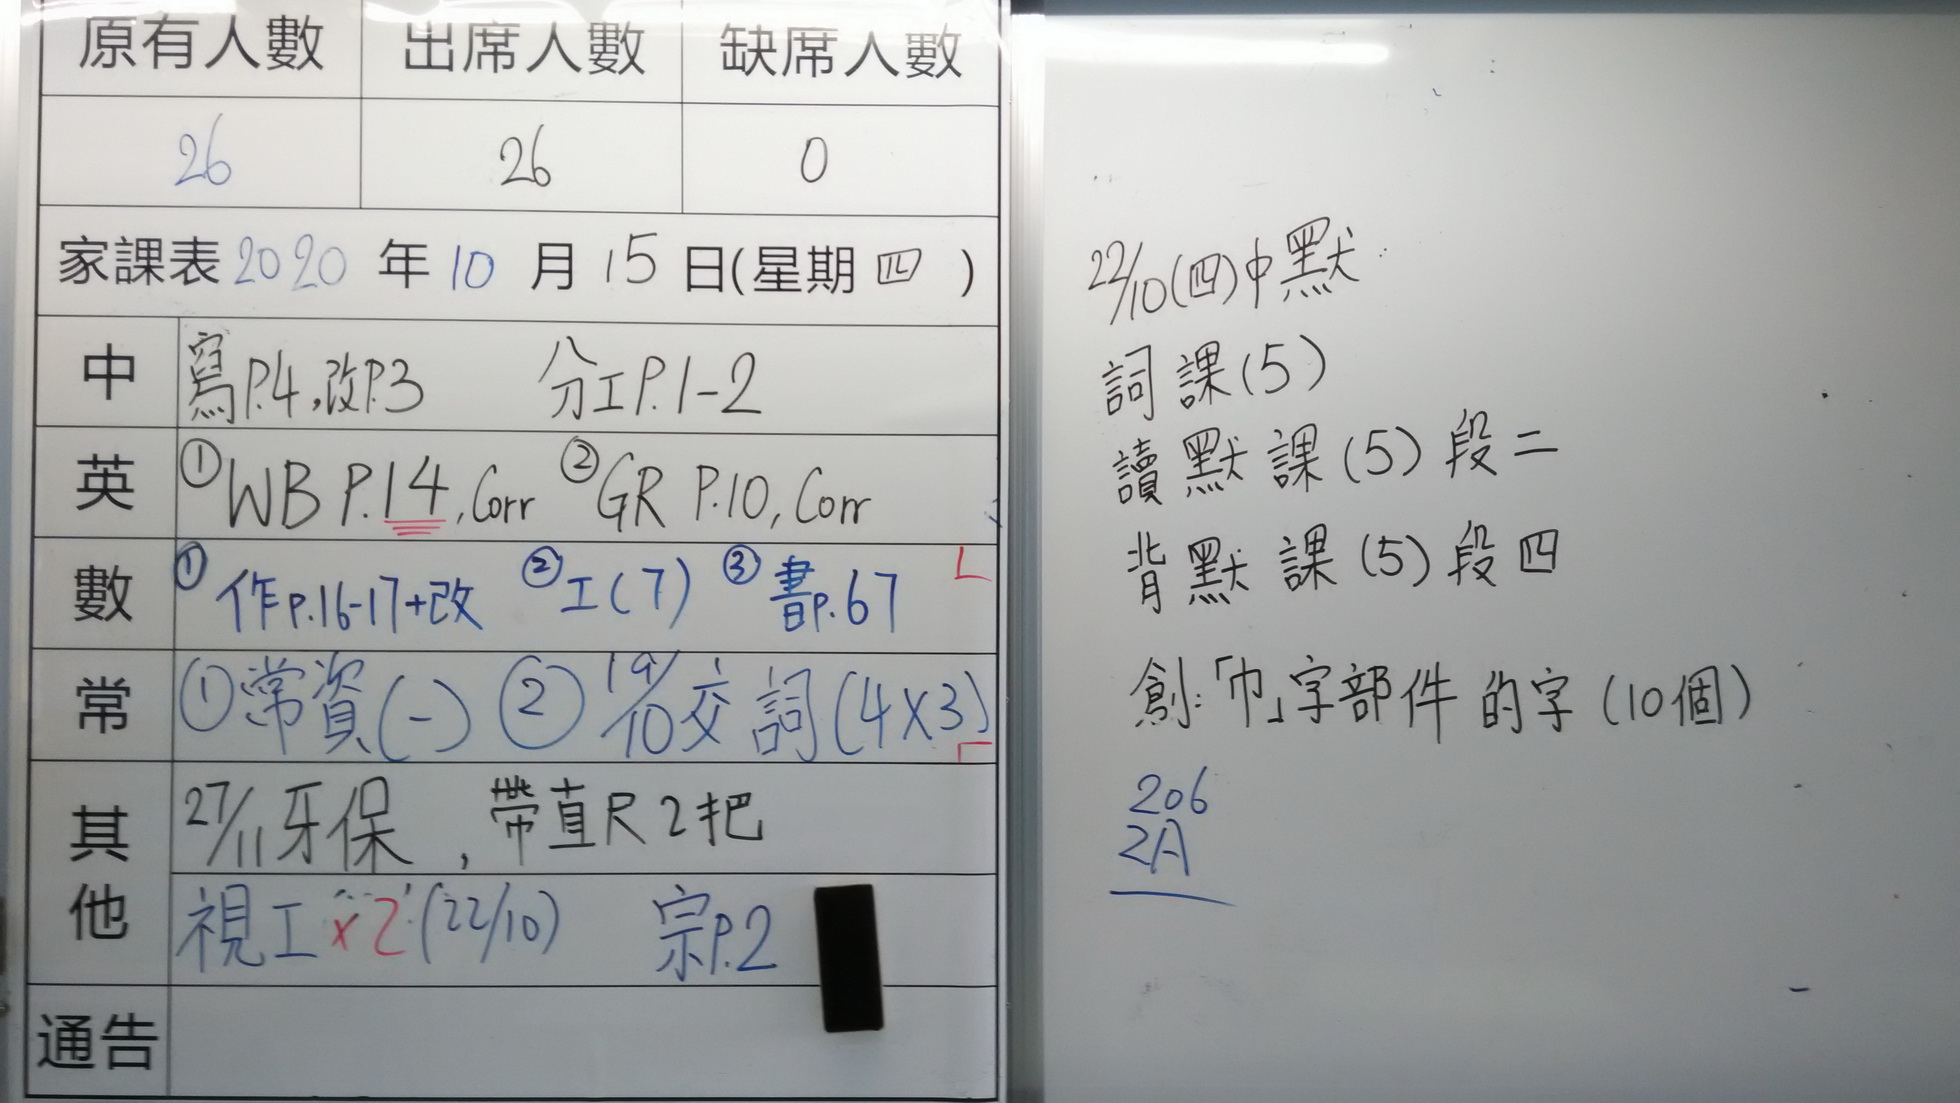 原有人數 出席人數 缺席人數
26 26 0
家課表 2020 年 10 月 15 日(星期 四 )
中 寫P.4,改P.3 分工P.1-2
英 ①WB P.14,Corr ②GR P.10,Corr
數 ①作p.16-17+改 ②工(7) ③書p.67
常 ①常資(一) ②19/10交詞(4X3)
其他 27/11牙保,帶直尺2把
視工x2(22/10) 宗P.2
通告
22/10(四)中默
詞課(5)
讀默課(5)段二
背默課(5)段四
創:「巾」字部件的字(10個)
206
2A